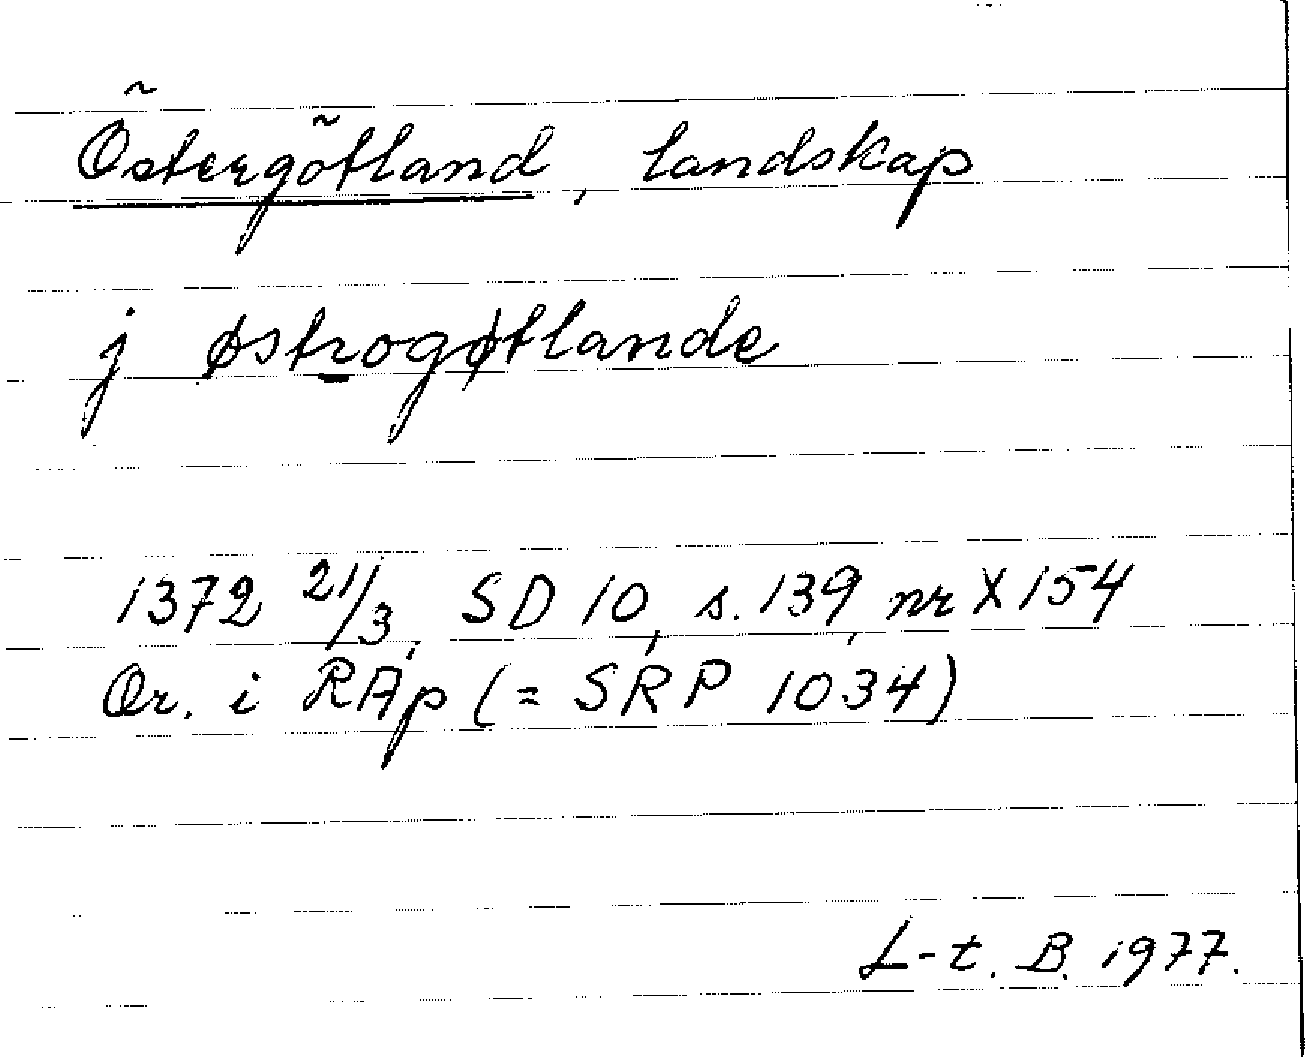 Östergötland, landskap
j østrogøtlande
1372 21/3, SD 10, s. 139, nr X 154
Or. i RAp (= SRP 1034)
L-t. B. 1977.